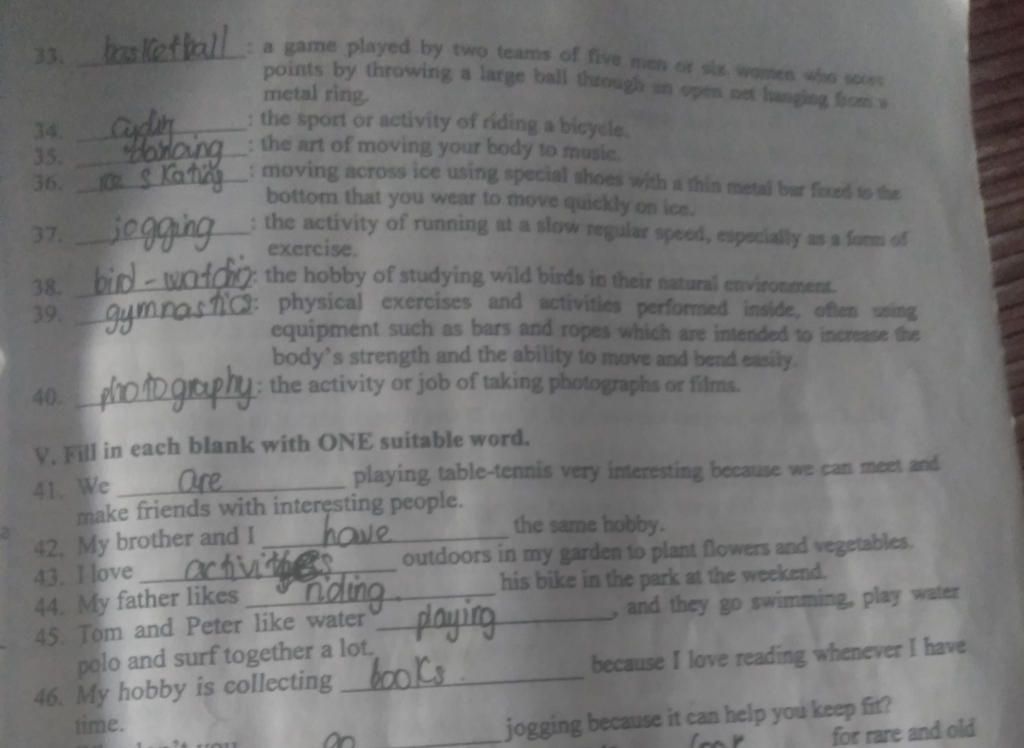 33. basketball : a game played by two teams of five men or six women who score
points by throwing a large ball through an open net hanging from a
metal ring.
34. : the sport or activity of riding a bicycle.
35. dancing : the art of moving your body to music.
36. ice skating : moving across ice using special shoes with a thin metal bar fixed to the
bottom that you wear to move quickly on ice.
37. jogging : the activity of running at a slow regular speed, especially as a form of
exercise.
38. bird-watching : the hobby of studying wild birds in their natural environment.
39. gymnastics : physical exercises and activities performed inside, often using
equipment such as bars and ropes which are intended to increase the
body's strength and the ability to move and bend easily.
40. photography : the activity or job of taking photographs or films.
V. Fill in each blank with ONE suitable word.
41. We are playing table-tennis very interesting because we can meet and
make friends with interesting people.
42. My brother and I have the same hobby.
43. I love activities outdoors in my garden to plant flowers and vegetables.
44. My father likes riding his bike in the park at the weekend.
45. Tom and Peter like water playing, and they go swimming, play water
polo and surf together a lot.
46. My hobby is collecting books. because I love reading whenever I have
time.
you go jogging because it can help you keep fit?
for for rare and old